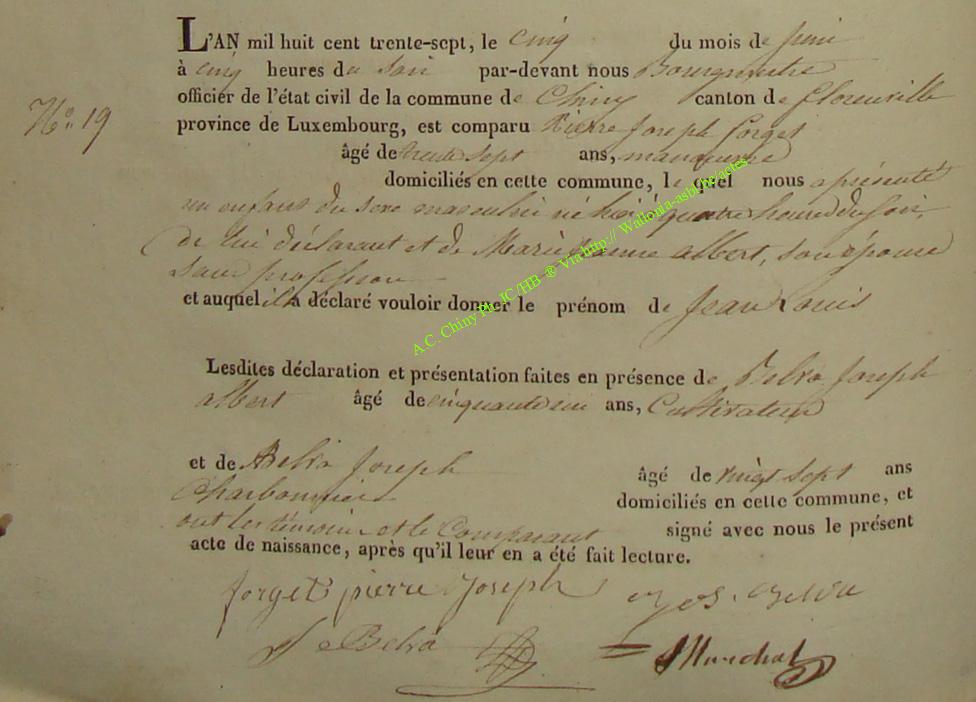 L'AN mil huit cent trente-sept, le cinq du mois de juin
à cinq heures du soir par-devant nous Bourgmestre
officier de l'état civil de la commune de Chiny canton de florenville
N° 19
province de Luxembourg, est comparu Pierre Joseph forget
âgé de trente sept ans, manoeuvre
domiciliés en cette commune, le quel nous a présenté
un enfant du sexe masculin né hier à quatre heures du soir,
de lui déclarant et de Marie Jeanne albert, son épouse
sans profession
et auquel il a déclaré vouloir donner le prénom de Jean Louis
A.C. Chiny Ph. JC/HB ® Via http:// Wallonia-asbl/be/actes
Lesdites déclaration et présentation faites en présence de Belva Joseph
albert âgé de cinquante un ans, Cultivateur
et de Belva Joseph âgé de vingt sept ans
Charbonnier domiciliés en cette commune, et
ont les témoins et le Comparant signé avec nous le présent
acte de naissance, après qu'il leur en a été fait lecture.
forget pierre Joseph Jos. Belva
J Belva Marechal